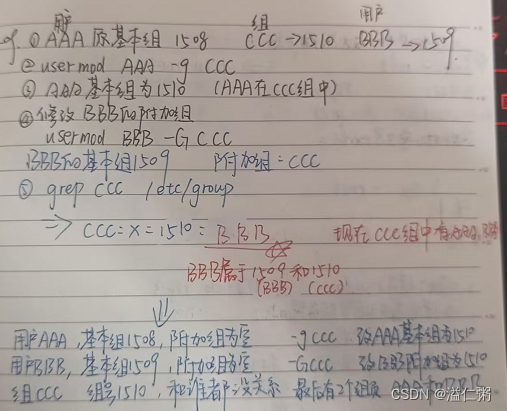 用户 组 用户
eg. ① AAA 原基本组 1508 CCC →1510 BBB →1509
② usermod AAA -g CCC
③ AAA 基本组为1510 (AAA在CCC组中)
④ 修改 BBB的附加组
usermod BBB -G CCC
BBB的基本组1509 附加组:CCC
⑤ grep CCC /etc/group
⇒ CCC:x:1510:BBB 现在CCC组中有AAA,BBB
BBB属于1509和1510
(BBB) (CCC)
用户AAA,基本组1508,附加组为空 -gCCC 改AAA基本组为1510
用户BBB,基本组1509,附加组为空 -GCCC 改BBB附加组为1510
组CCC 组号1510,和谁都没关系 最后有2个组员 AAA和BBB
CSDN @溢仁粥